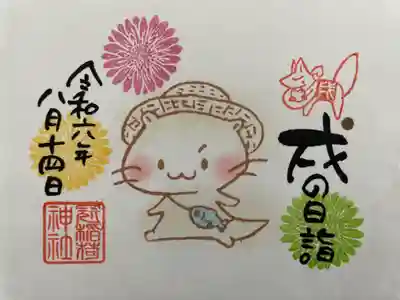 戌の日詣
令和六年
八月十四日
稲荷
神社